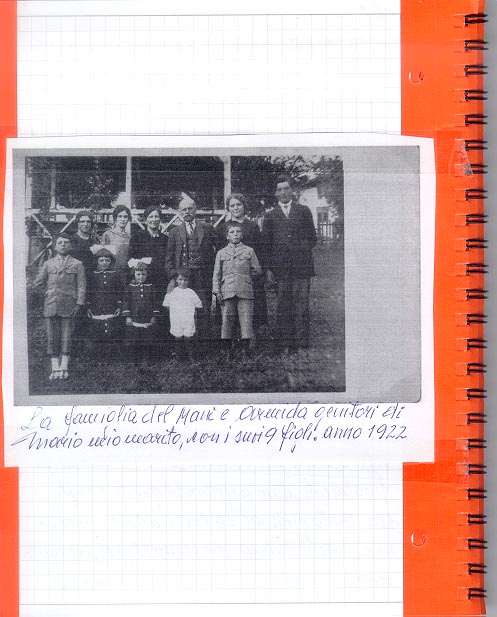 La famiglia del Mari e Armida genitori di
Mario mio marito, con i suoi 9 figli. anno 1922